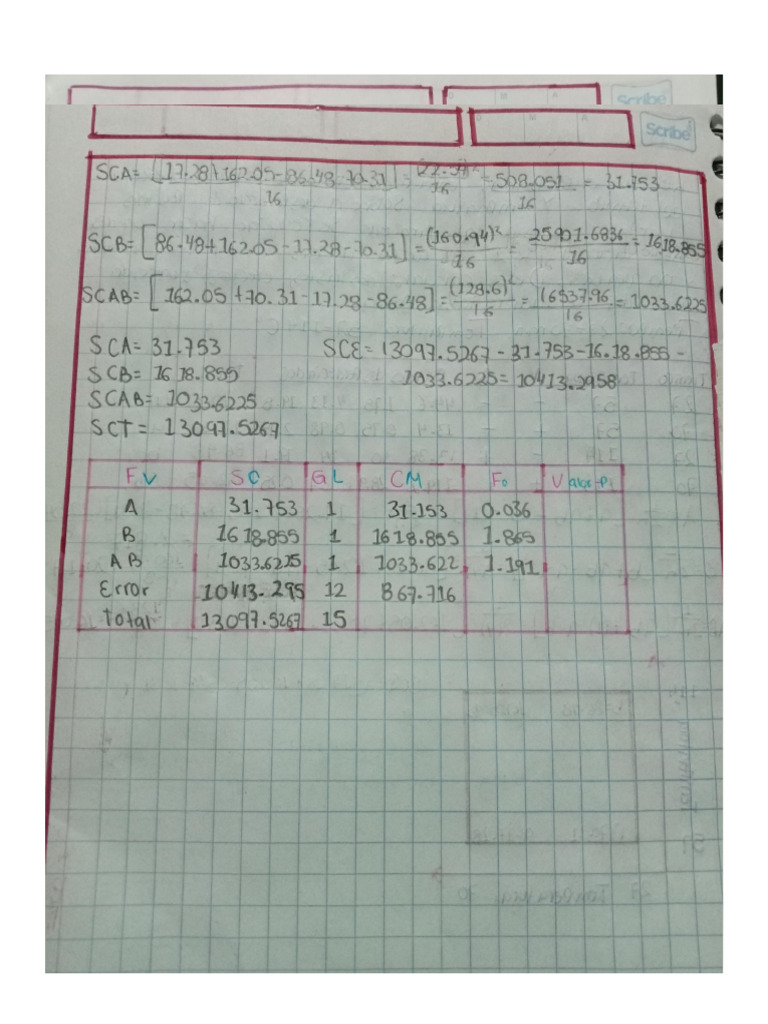 Scribe
Scribe
SCA= [17.28+162.05-86.48-70.31] = = 508.051 = 31.753
16 16 16
SCB= [86.48+162.05-17.28-70.31] = (160.94)² = 25901.6836 = 1618.855
16 16
SCAB= [162.05+70.31-17.28-86.48] = (128.6)² = 16537.96 = 1033.6225
16 16
SCA= 31.753 SCE= 13097.5267 - 31.753 - 16.18.855 -
SCB= 1618.855 1033.6225 = 10413.2958
SCAB= 1033.6225
SCT= 13097.5267
F.V SC GL CM Fo Valor-p
A 31.753 1 31.153 0.036
B 1618.855 1 1618.855 1.865
AB 1033.6225 1 1033.622 1.191
Error 10413.295 12 867.716
Total 13097.5267 15